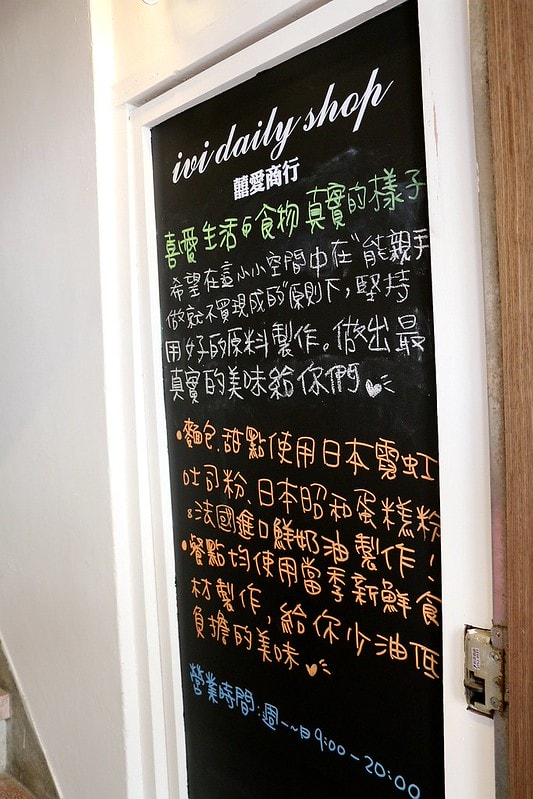 ivi daily shop
囍愛商行
喜愛生活&食物真實的樣子
希望在這小小空間中在"能親手
做就不買現成的"原則下,堅持
用好的原料製作。做出最
真實的美味給你們
•麵包、甜點使用日本霓虹
吐司粉、日本昭和蛋糕粉
&法國進口鮮奶油製作!
•餐點均使用當季新鮮食
材製作,給你少油低
負擔的美味
營業時間:週一~日9:00-20:00